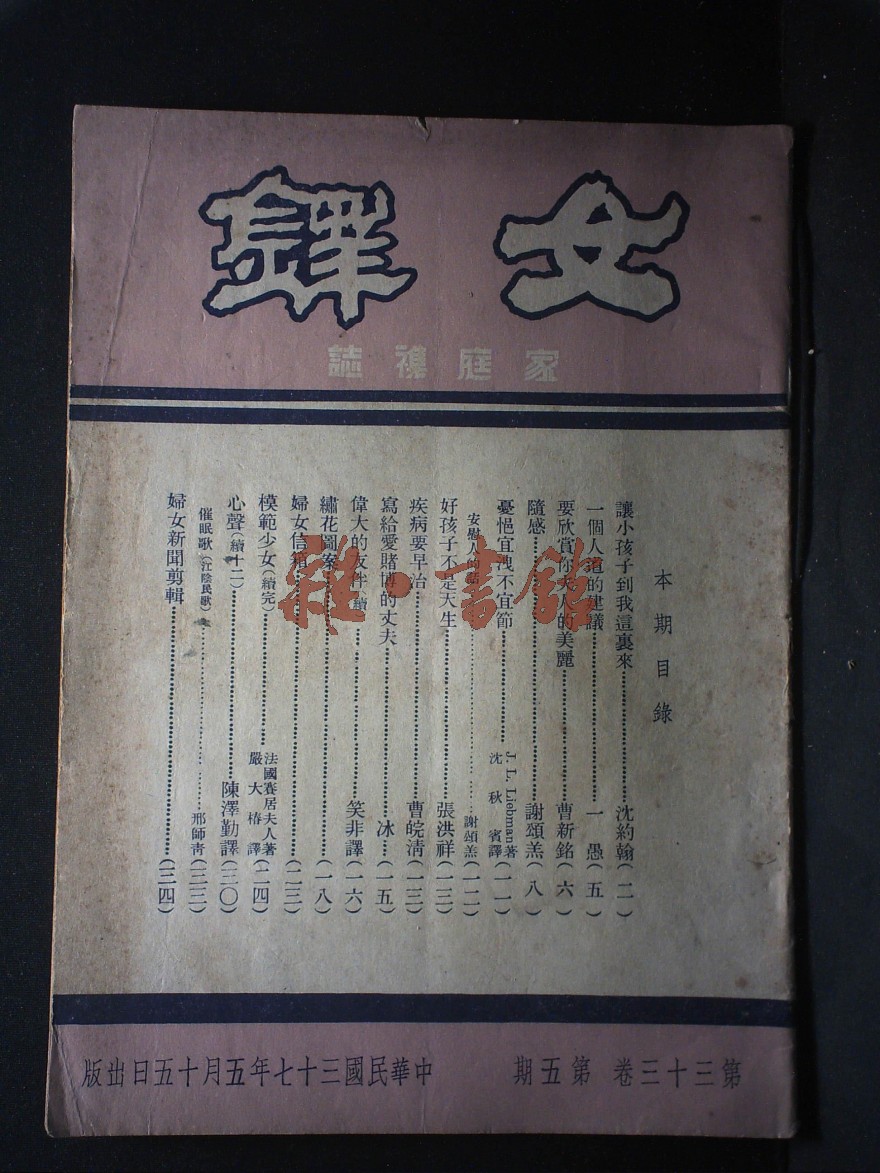 女鐸
家庭襍誌
本期目錄
讓小孩子到我這裏來 沈約翰（二）
一個人道的建議 一愚（五）
要欣賞你夫人的美麗 曹新銘（六）
隨感 謝頌羔（八）
憂悒宜洩不宜節 J. L. Liebman著 沈秋賓譯（一一）
安慰人 謝頌羔（一二）
好孩子不是天生 張洪祥（一三）
疾病要早治 曹皖清（一三）
寫給愛賭博的丈夫 冰（一五）
偉大的友伴（續） 笑非譯（一六）
繡花圖案（一八）
婦女信箱（二三）
模範少女（續完） 法國賽居夫人著 嚴大椿譯（二四）
心聲（續十二） 陳澤勤譯（三〇）
催眠歌（江陰民歌） 邢師靑（三三）
婦女新聞剪輯（三四）
雜·書館
第三十三卷 第五期 中華民國三十七年五月十五日出版